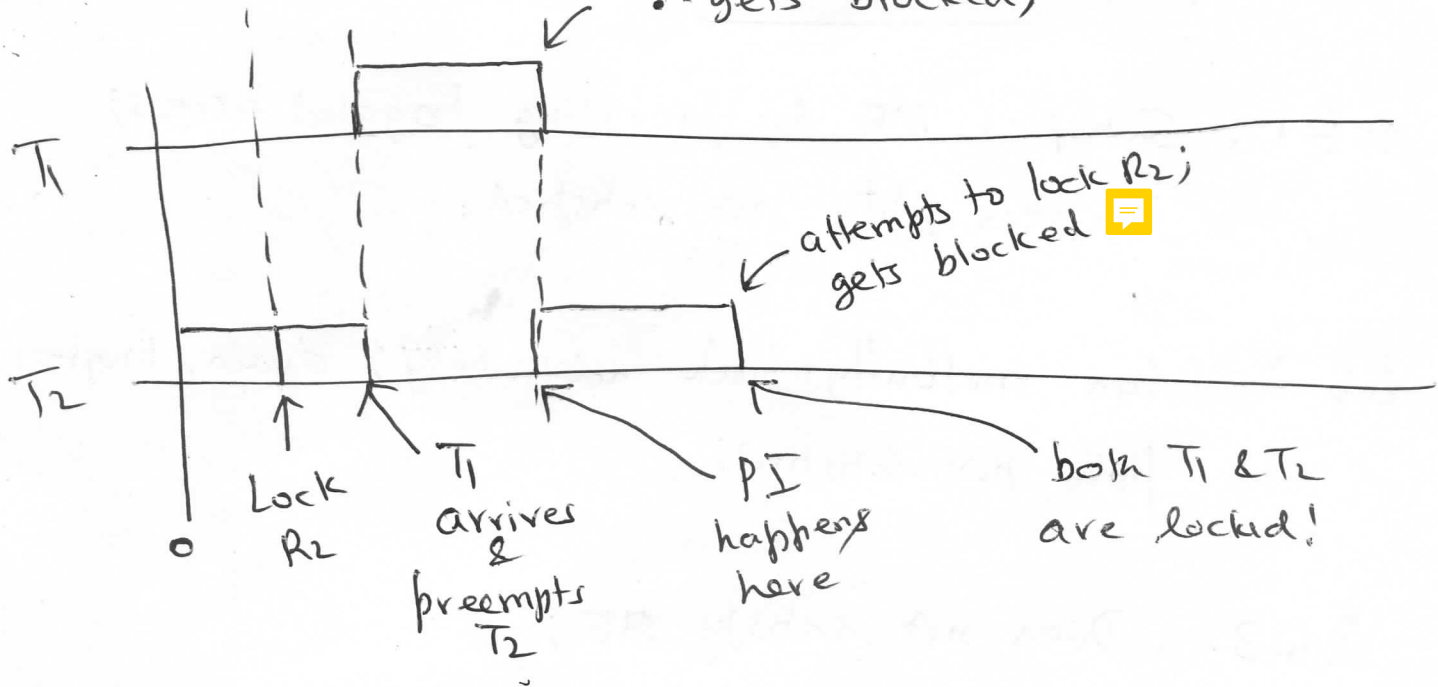 gets blocked)
T1
attempts to lock R2;
gets blocked
T2
Lock
R2
T1
arrives
&
preempts
T2
PI
happens
here
both T1 & T2
are locked!
0